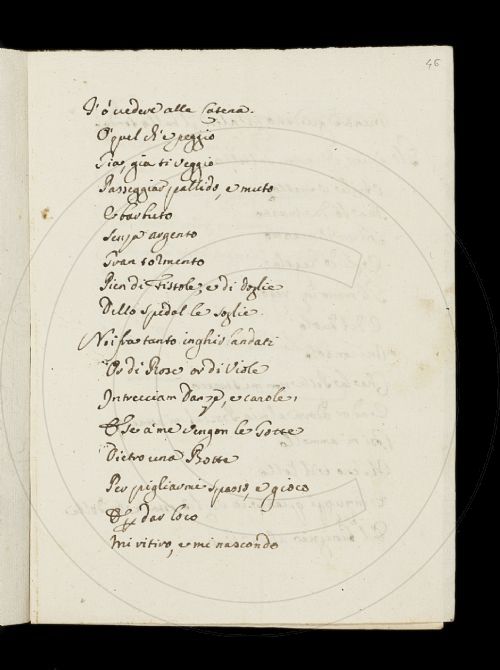 46
T'ò uedere alla Catena.
O' quel ch'è peggio
Già, già ti veggio
Passeggiar pallido, e muto
E barbuto
Senz' argento
Gran tormento
Pien di Fistole, e di doglie
Dello Spedal le soglie.
Noi fra tanto inghirlandati
Or di Rose or di Viole
Intrecciam Danze, e carole,
E se à me vengon le Gotte
Dietro una Botte
Per pigliarmi spasso, e gioco
E per dar loco
Mi ritiro, e mi nascondo